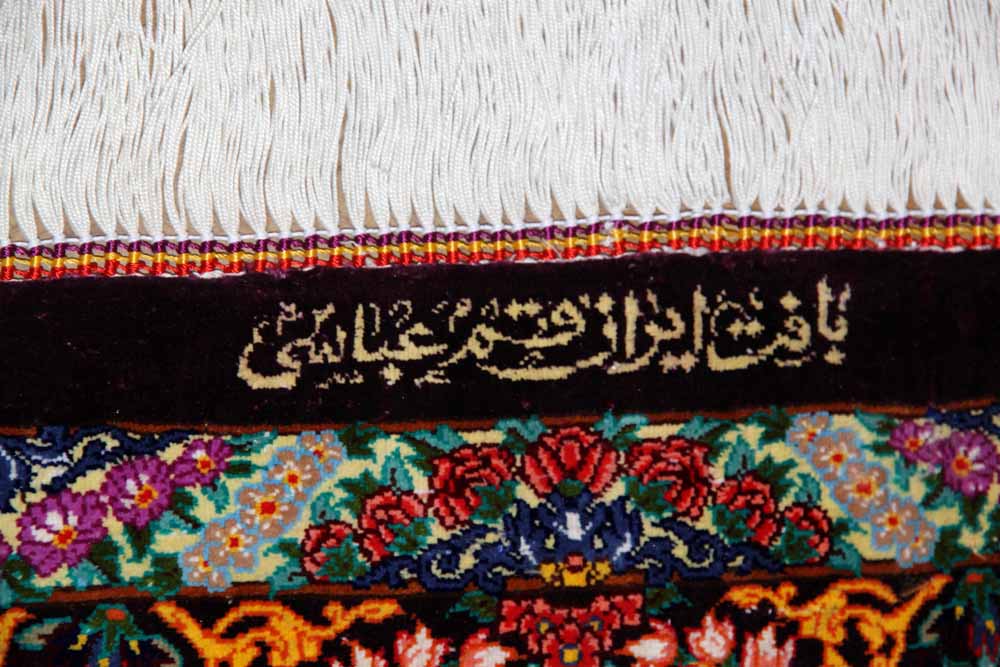 بافت ایران قم عباسی